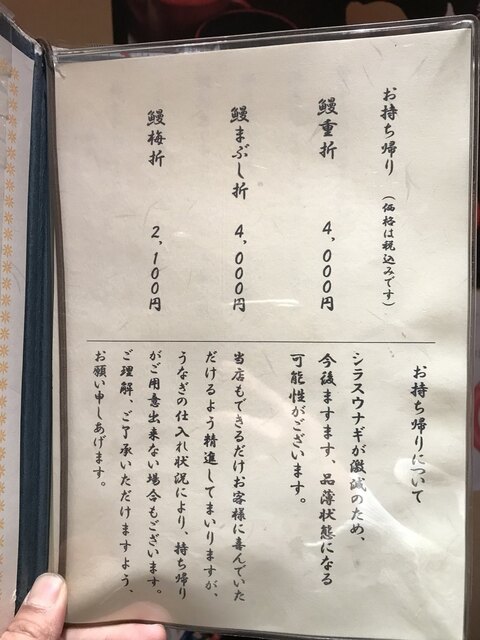 お持ち帰り （価格は税込みです）
鰻重折 4,000円
鰻まぶし折 4,000円
鰻梅折 2,100円
お持ち帰りについて
シラスウナギが激減のため、
今後ますます、品薄状態になる
可能性がございます。
当店もできるだけお客様に喜んでいた
だけるよう精進してまいりますが、
うなぎの仕入れ状況により、持ち帰り
がご用意出来ない場合もございます。
ご理解、ご了承いただけますよう、
お願い申しあげます。